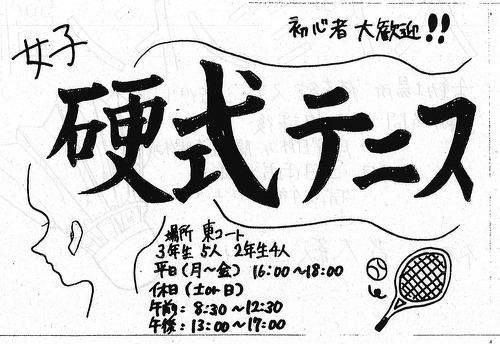 女子
初心者大歓迎!!
硬式テニス
場所 東コート
3年生 5人 2年生4人
平日(月〜金) 16:00〜18:00
休日(土or日)
午前: 8:30〜12:30
午後: 13:00〜17:00